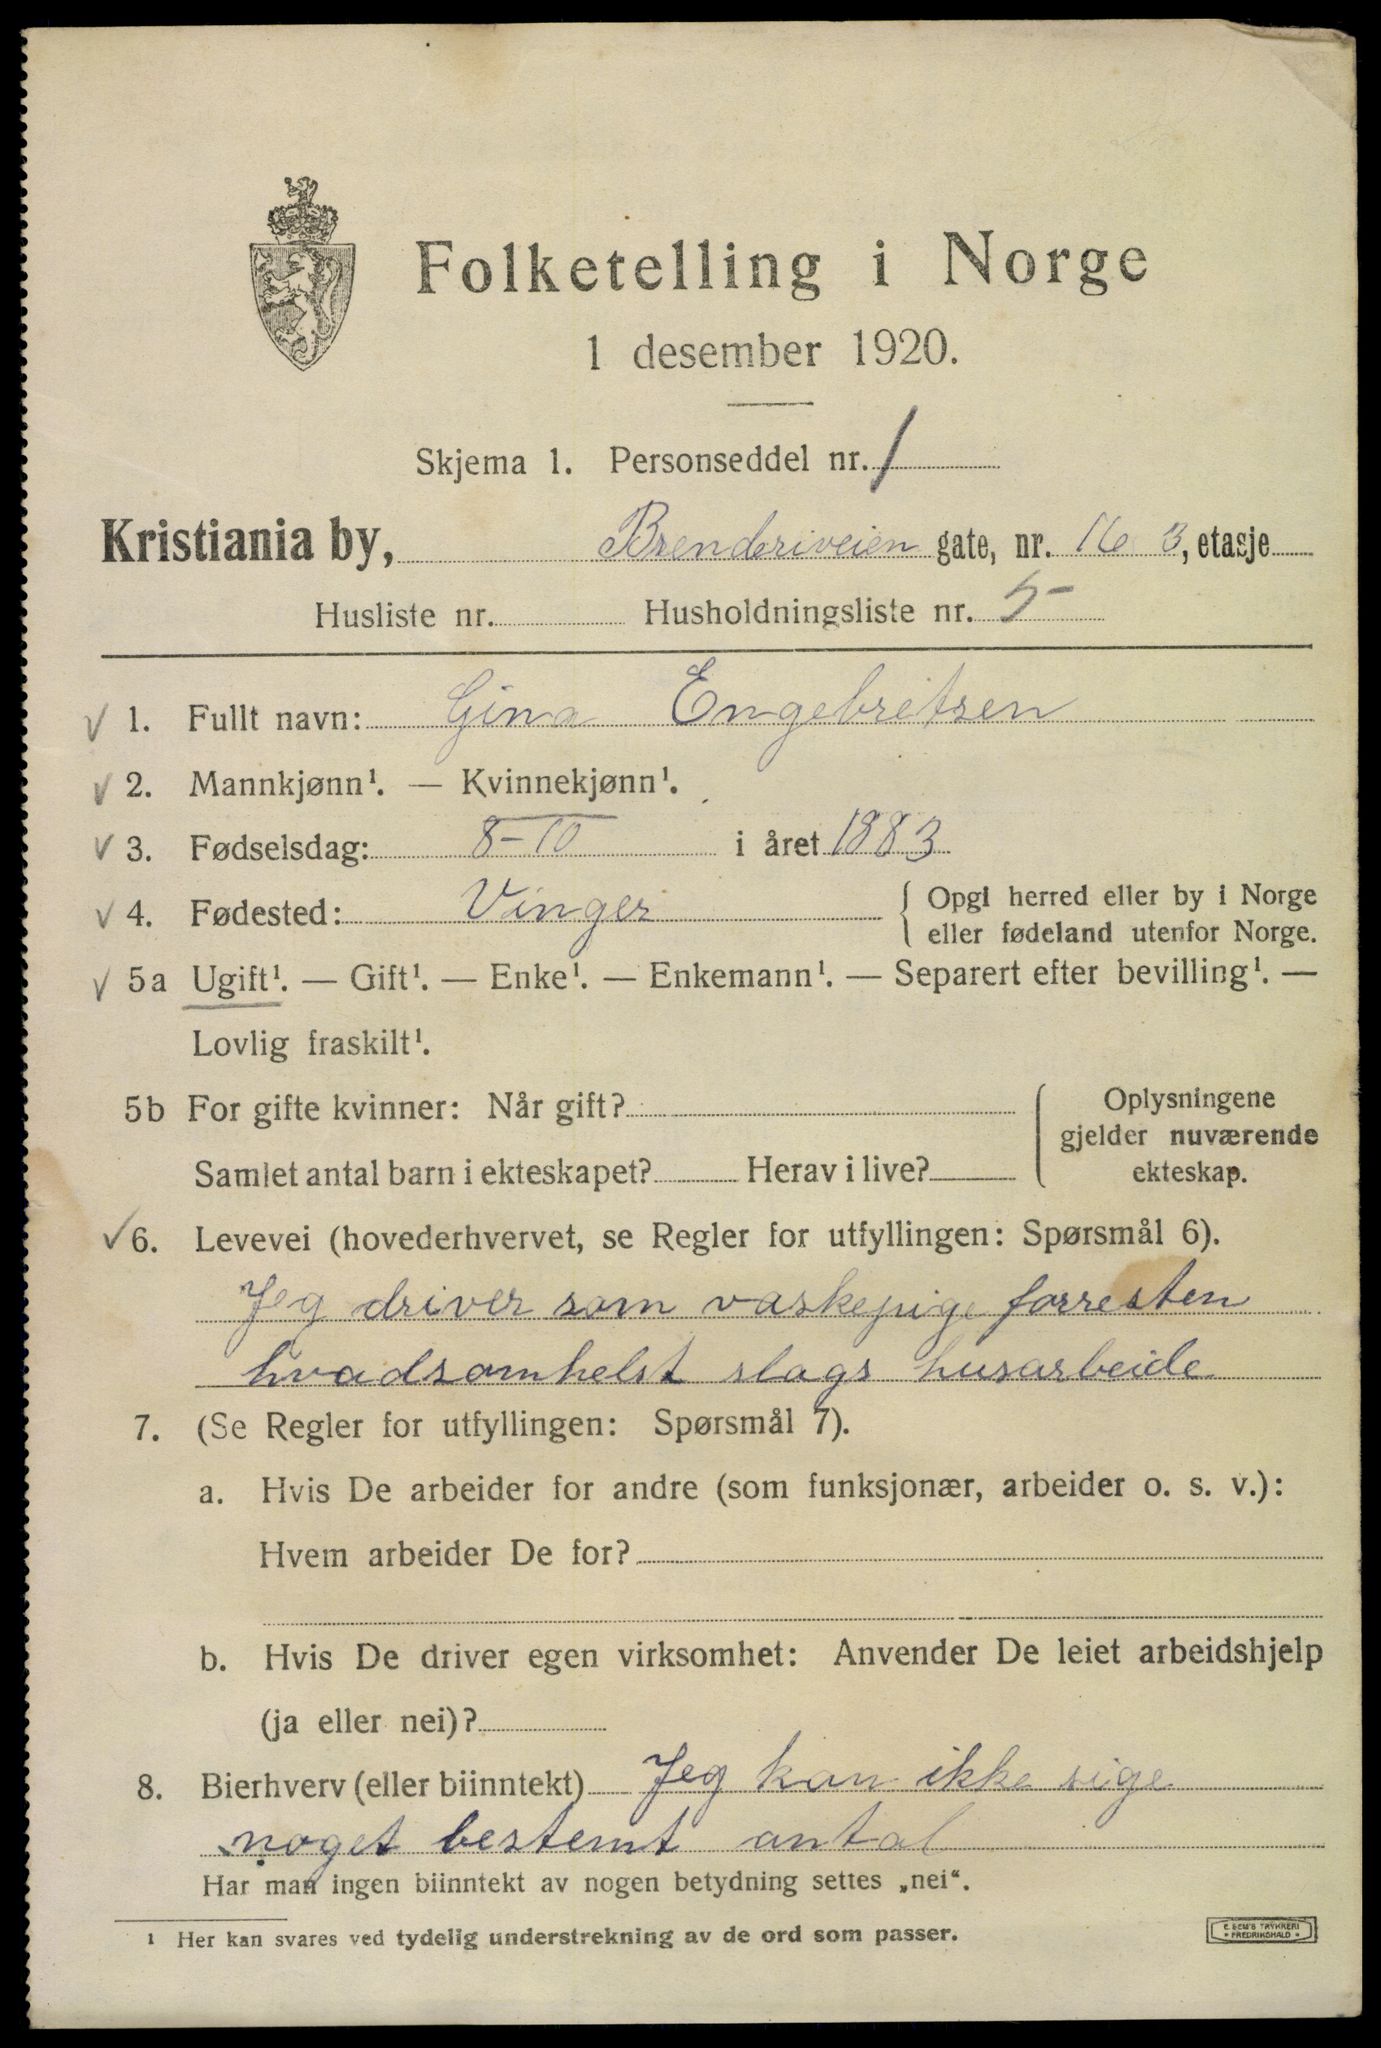 Folketelling i Norge
1 desember 1920.
Skjema 1. Personseddel nr. 1
Kristiania by, Brenderiveien gate, nr. 16 3, etasje
Husliste nr. Husholdningsliste nr. 5
1. Fullt navn: Gina Engebretsen
2. Mannkjønn¹. — Kvinnekjønn¹.
3. Fødselsdag: 8-10 i året 1883
4. Fødested: Vinger { Opgi herred eller by i Norge
eller fødeland utenfor Norge.
5a Ugift¹. — Gift¹. — Enke¹. — Enkemann¹. — Separert efter bevilling¹. —
Lovlig fraskilt¹.
5b For gifte kvinner: Når gift? { Oplysningene
gjelder nuværende
Samlet antal barn i ekteskapet? Herav i live? ekteskap.
6. Levevei (hovederhvervet, se Regler for utfyllingen: Spørsmål 6).
Jeg driver som vaskepige forresten
hvadsomhelst slags husarbeide
7. (Se Regler for utfyllingen: Spørsmål 7).
a. Hvis De arbeider for andre (som funksjonær, arbeider o. s. v.):
Hvem arbeider De for?
b. Hvis De driver egen virksomhet: Anvender De leiet arbeidshjelp
(ja eller nei)?
8. Bierhverv (eller biinntekt) Jeg kan ikke sige
noget bestemt antal
Har man ingen biinntekt av nogen betydning settes „nei“.
¹ Her kan svares ved tydelig understrekning av de ord som passer.
E. SEM'S TRYKKERI
• FREDRIKSHALD •